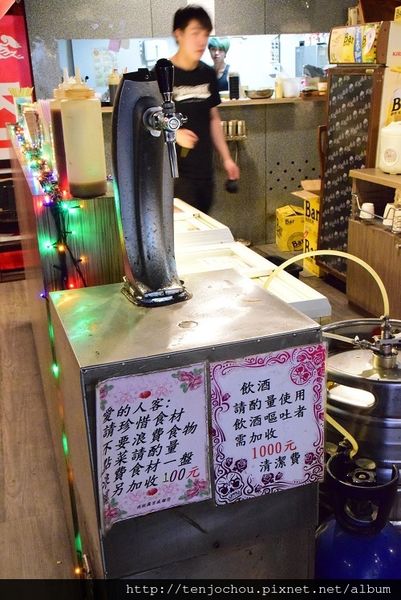 愛的人客:
請珍惜食材
不要浪費食物
點菜請酌量
浪費食材一盤
另加收100元
飲酒
請酌量使用
飲酒嘔吐者
需加收
1000元
清潔費
Bar
http://tenjochou.pixnet.net/album